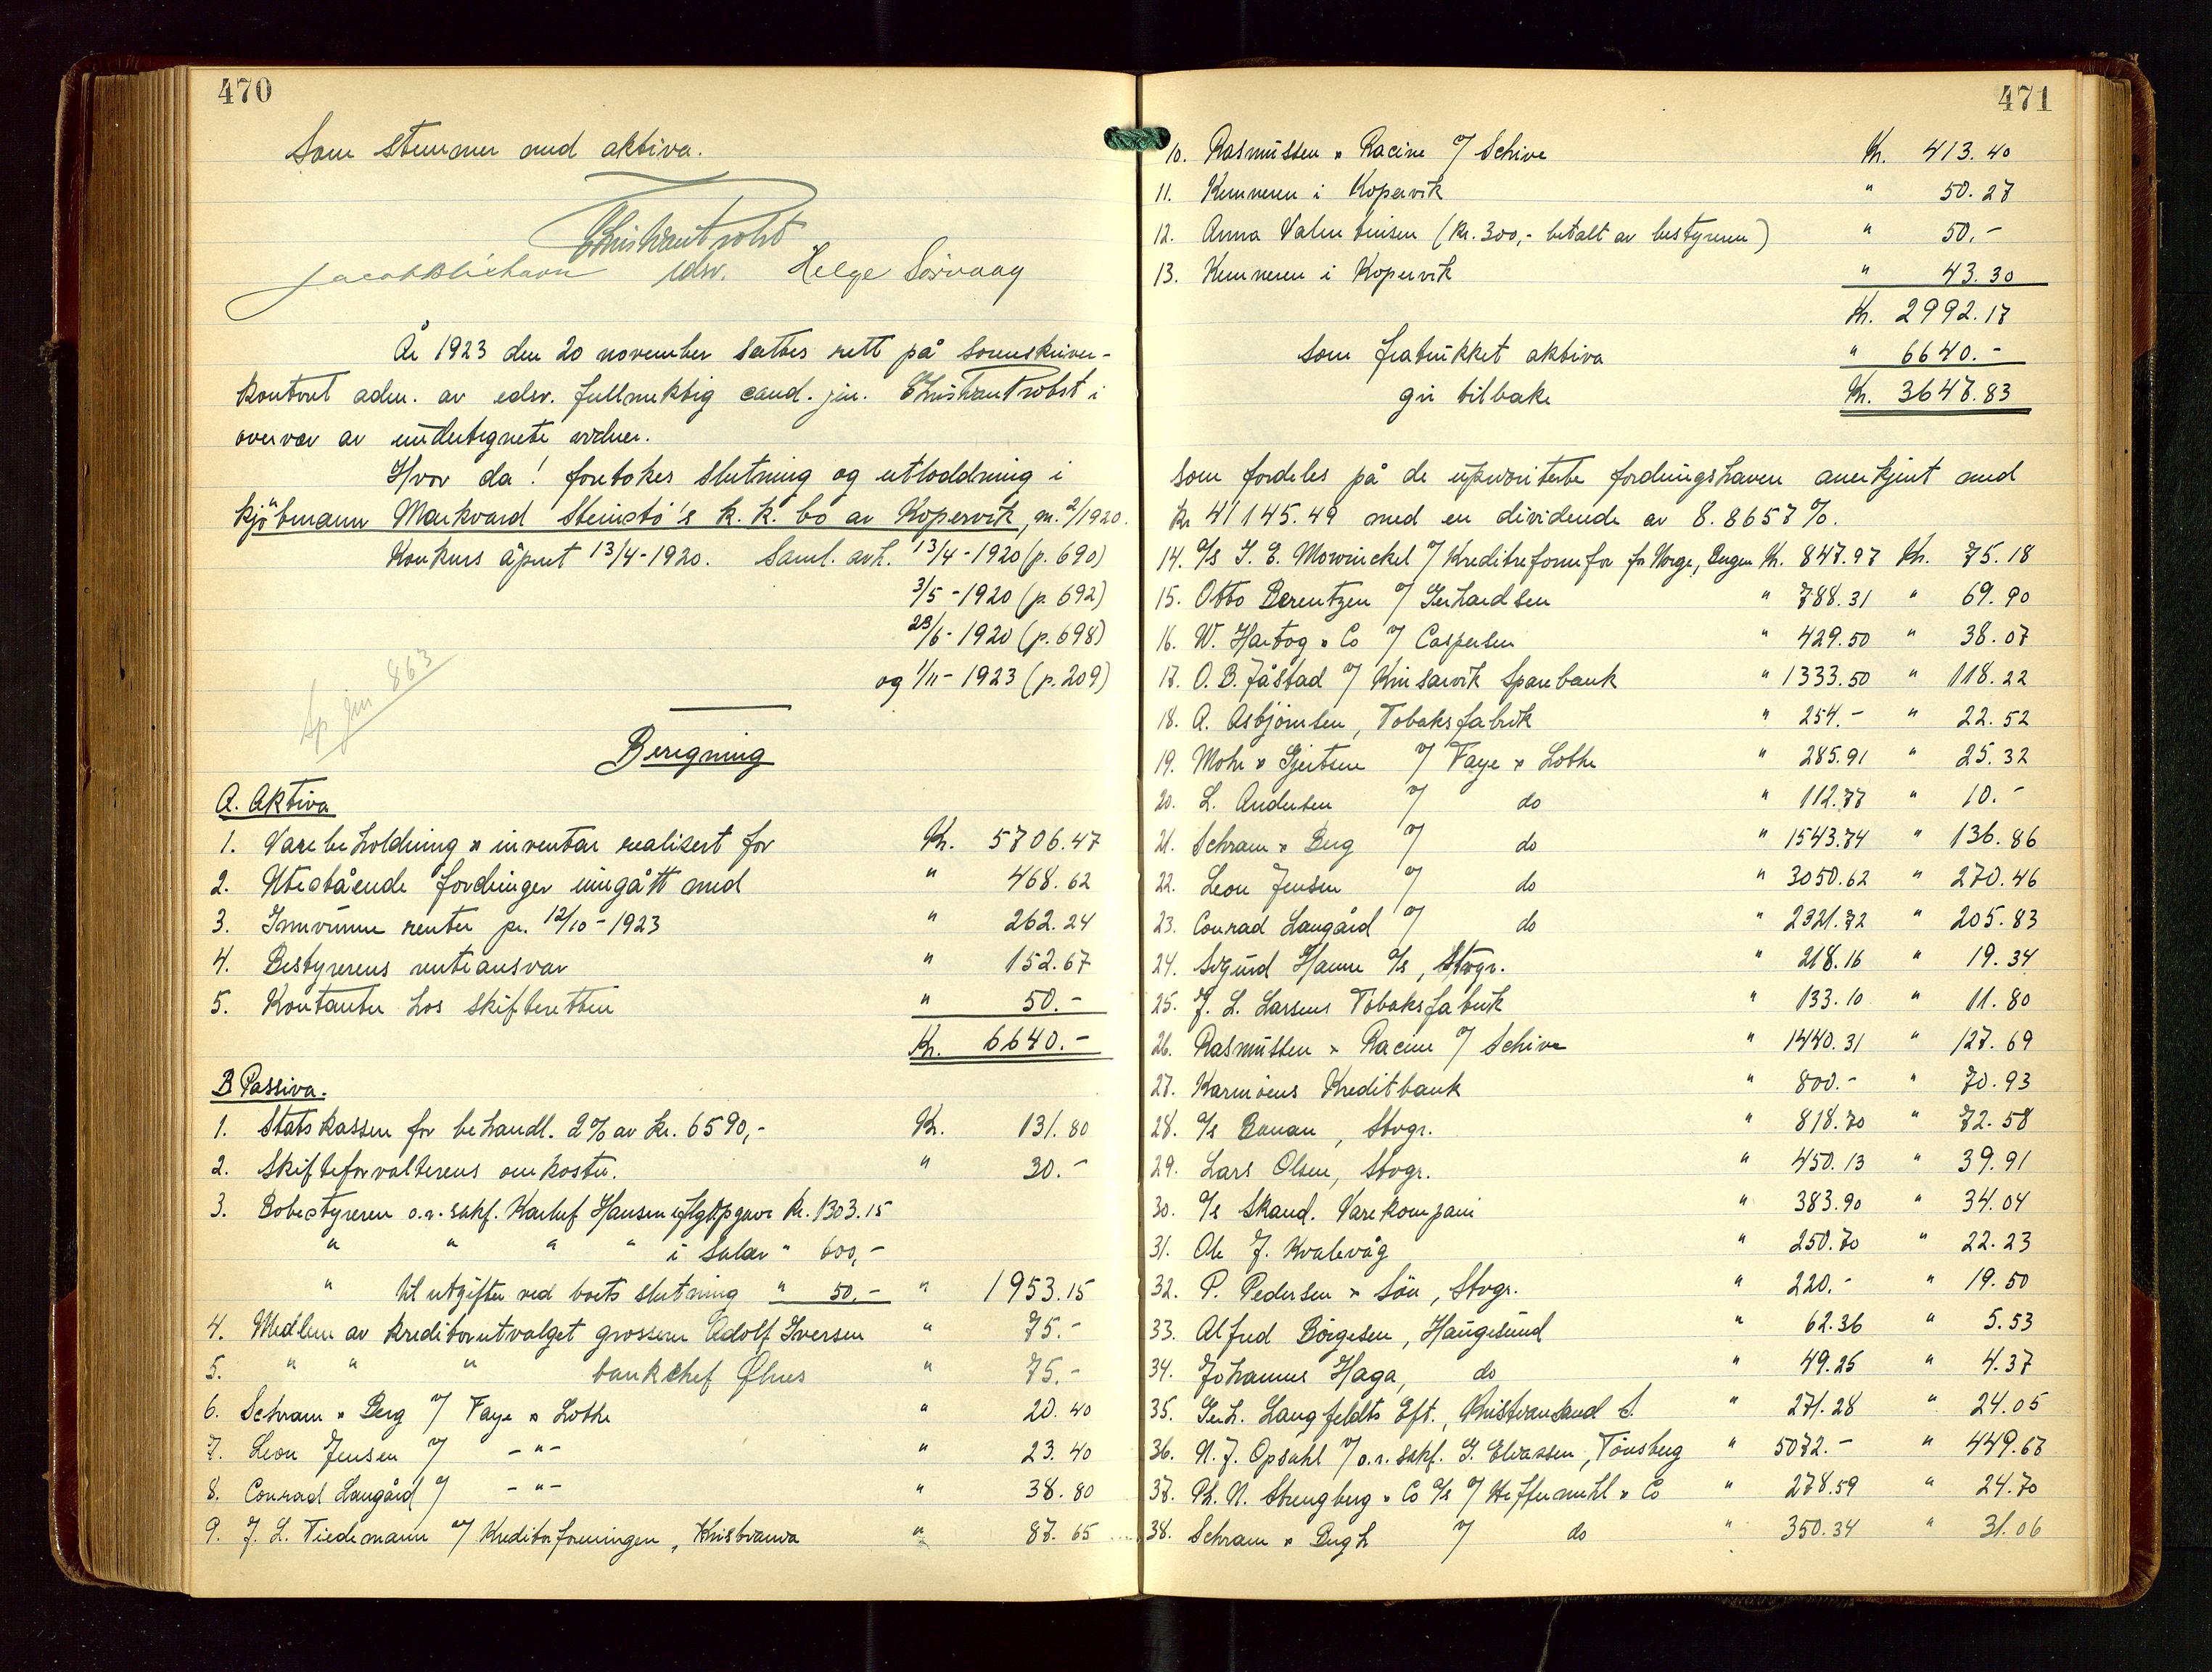 470
Som stemmer med aktiva.
Christian Probst
edsv. Helge Sørvaag
År 1923 den 20 november sattes rett på sorenskriver-
kontoret adm. av edsv. fullmektig cand. jur. Christian Probst i
overvær av undertegnete vidner.
Hvor da! foretokes slutning og utloddning i
kjøbmann Markvard Steinstö's k. k. bo av Kopervik, nr. 2/1920.
Konkurs åpnet 13/4-1920. Saml. avh. 13/4-1920 (p. 690)
3/5-1920 (p. 692)
23/6-1920 (p. 698)
og 1/11-1923 (p. 209)
Sp jnr 863
Beregning
A. Aktiva
1. Varebeholdning & inventar realisert for Kr. 5706.47
2. Utestående fordringer inngått med " 468.62
3. Innvunne renter pr. 12/10-1923 " 262.24
4. Bestyrerens renteansvar " 152.67
5. Kontanter hos skifteretten " 50.-
Kr. 6640.-
B Passiva.
1. Statskassen for behandl. 2% av kr. 6590,- Kr. 131.80
2. Skifteforvalterens omkostn. " 30.-
3. Bobestyreren o.r. sakf. Karluf Hansen iflg opgave kr. 1303.15
" " " " i salær " 600,-
" til utgifter ved boets slutning " 50,- " 1953.15
4. Medlem av kreditorutvalget grosserer Adolf Iversen " 75.-
5. " " " bankchef Øhus " 75.-
6. Schram & Berg v/ Faye & Lothe " 20.40
7. Leon Jensen v/ -"- " 23.40
8. Conrad Langård v/ -"- " 38.80
9. J. L. Tiedemann v/ Kreditorforeningen, Kristiania " 87.65
471
10. Rasmussen & Racine v/ Schive Kr. 413.40
11. Kemneren i Kopervik " 50.27
12. Anna Valentinsen (Kr. 300,- betalt av bestyreren) " 50,-
13. Kemneren i Kopervik " 43.30
Kr. 2992.17
som fratrukket aktiva " 6640.-
gir tilbake Kr. 3647.83
som fordeles på de uprioriterte fordringshavere anerkjent med
kr 41145.49 med en dividende av 8.8657%.
14. A/s J. E. Mowinckel v/ Kreditreformfor. for Norge, Bergen Kr. 847.97 Kr. 75.18
15. Otto Berentzen v/ Gerhardsen " 788.31 " 69.90
16. W. Hartog & Co v/ Caspersen " 429.50 " 38.07
17. O. B. Jåstad v/ Kinsarvik Sparebank " 1333.50 " 118.22
18. A. Asbjørnsen, Tobaksfabrik " 254.- " 22.52
19. Mohr & Gjertsen v/ Faye & Lothe " 285.91 " 25.32
20. L. Andersen v/ do " 112.77 " 10.-
21. Schram & Berg v/ do " 1543.74 " 136.86
22. Leon Jensen v/ do " 3050.62 " 270.46
23. Conrad Langård v/ do " 2321.72 " 205.83
24. Sigurd Hamre A/s, Stvgr. " 218.16 " 19.34
25. J. L. Larsens Tobaksfabrik " 133.10 " 11.80
26. Rasmussen & Racine v/ Schive " 1440.31 " 127.69
27. Karmöens Kreditbank " 800.- " 70.93
28. A/s Banan, Stvgr. " 818.70 " 72.58
29. Lars Olsen, Stvgr. " 450.13 " 39.91
30. A/s Skand. Varekompani " 383.90 " 34.04
31. Ole J. Kvalevåg " 250.70 " 22.23
32. P. Pedersen & Sön, Stvgr. " 220.- " 19.50
33. Alfred Börgesen, Haugesund " 62.36 " 5.53
34. Johannes Haga, do " 49.25 " 4.37
35. Gerh. Langfeldts Eft., Kristiansand S. " 271.28 " 24.05
36. N. J. Opsahl v/ o.r. sakf. G. Eliassen, Tönsberg " 5072.- " 449.67
37. Ph. N. Strengberg & Co A/s v/ Heffermehl & Co " 278.59 " 24.70
38. Schram & Bergh v/ do " 350.34 " 31.06